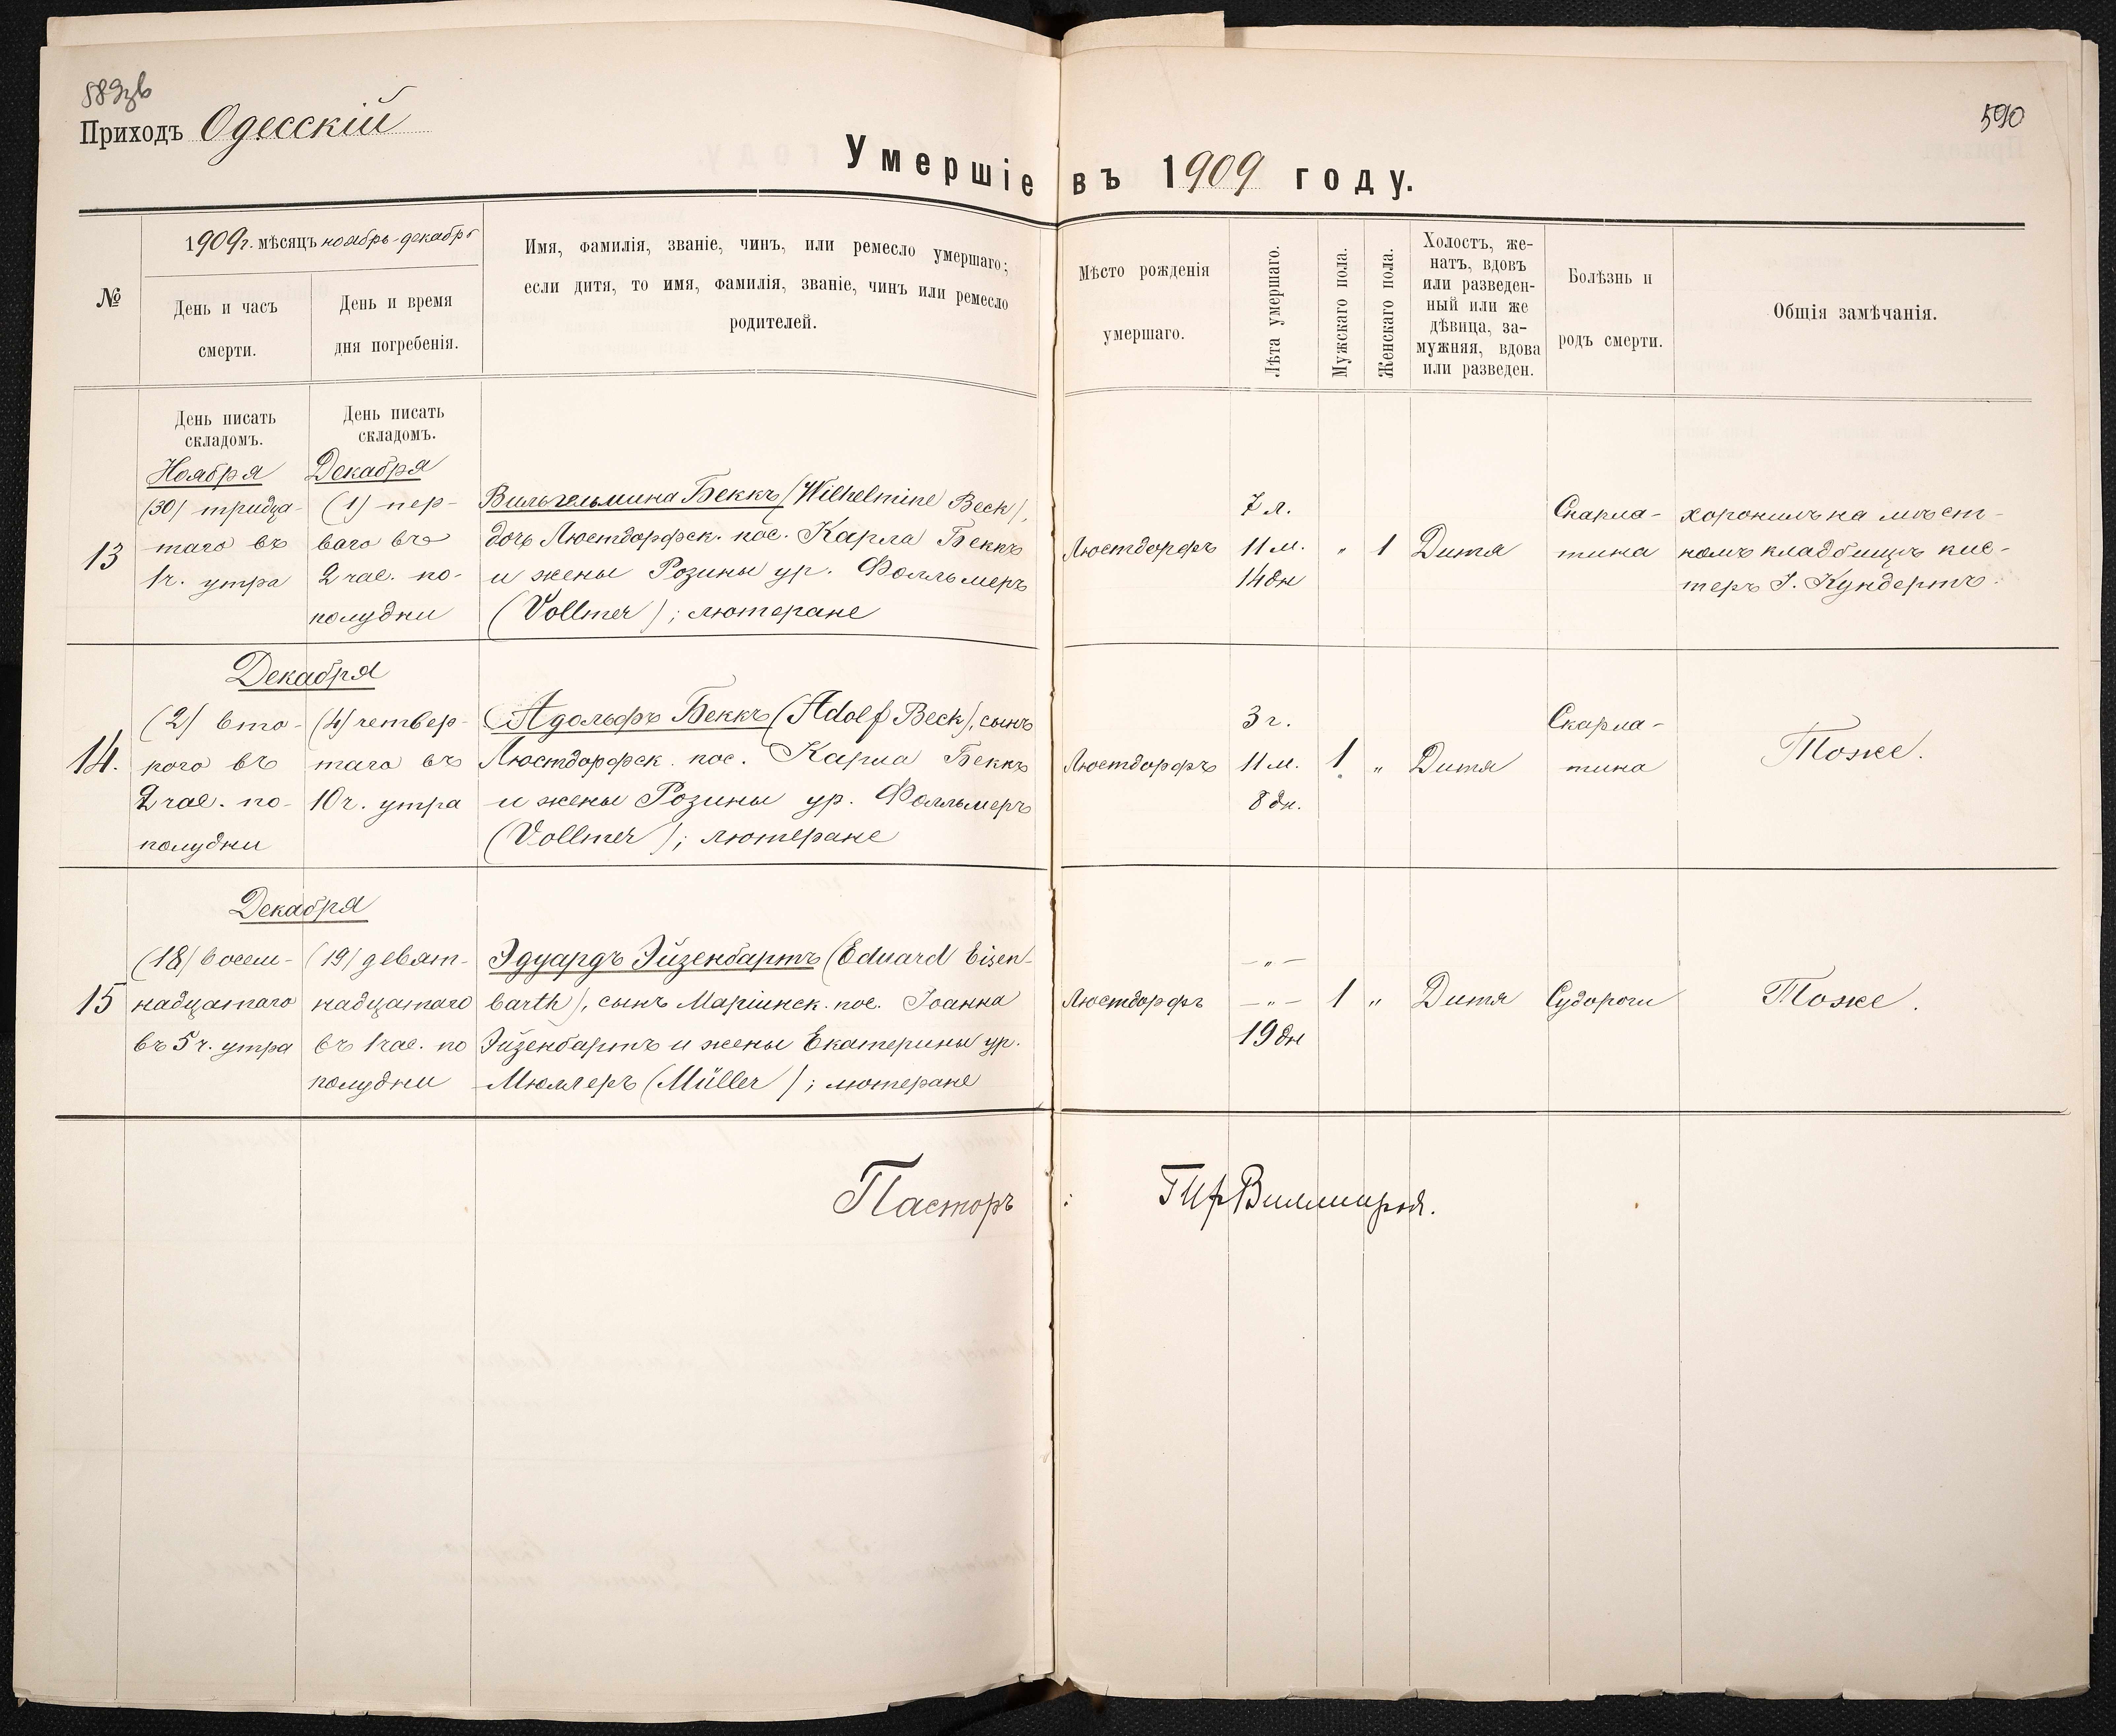 589зв
590
Приходъ Одесскій
Умершіе въ 1909 году.
№
1909г. мѣсяцъ ноябрь-декабрь
День и часъ
смерти.
День и время
дня погребенія.
Имя, фамилія, званіе, чинъ, или ремесло умершаго;
если дитя, то имя, фамилія, званіе, чинъ или ремесло
родителей.
Мѣсто рожденія
умершаго.
Лѣта умершаго.
Мужскаго пола.
Женскаго пола.
Холостъ, же-
натъ, вдовъ
или разведен-
ный или же
дѣвица, за-
мужняя, вдова
или разведен.
Болѣзнь и
родъ смерти.
Общія замѣчанія.
День писать
складомъ.
День писать
складомъ.
13
Ноября
(30) тридца-
таго въ
1ч. утра
Декабря
(1) пер-
ваго въ
2 час. по-
полудни
Вильгельмина Беккъ (Wilhelmine Beck),
дочь Люстдорфск. пос. Карла Беккъ
и жены Розины ур. Фолльмеръ
(Vollmer); лютеране
Люстдорфъ
7 л.
11 м.
14 дн
"
1
Дитя
Скарла-
тина
хоронилъ на мѣст-
номъ кладбищѣ кис-
теръ І. Кундертъ.
14.
Декабря
(2) вто-
рого въ
2 час. по-
полудни
(4) четвер-
таго въ
10 ч. утра
Адольфъ Беккъ (Adolf Beck), сынъ
Люстдорфск. пос. Карла Беккъ
и жены Розины ур. Фолльмеръ
(Vollmer); лютеране
Люстдорфъ
3 г.
11 м.
8 дн.
1
"
Дитя
Скарла-
тина
Тоже.
15
Декабря
(18) восем-
надцатаго
въ 5 ч. утра
(19) девят-
надцатаго
въ 1 час. по
полудни
Эдуардъ Эйзенбартъ (Eduard Eisen-
barth), сынъ Маріинск. пос. Іоанна
Эйзенбартъ и жены Екатерины ур.
Мюллеръ (Müller); лютеране
Люстдорфъ
-"-
-"-
19 дн
1
"
Дитя
Судороги
Тоже.
Пасторъ :